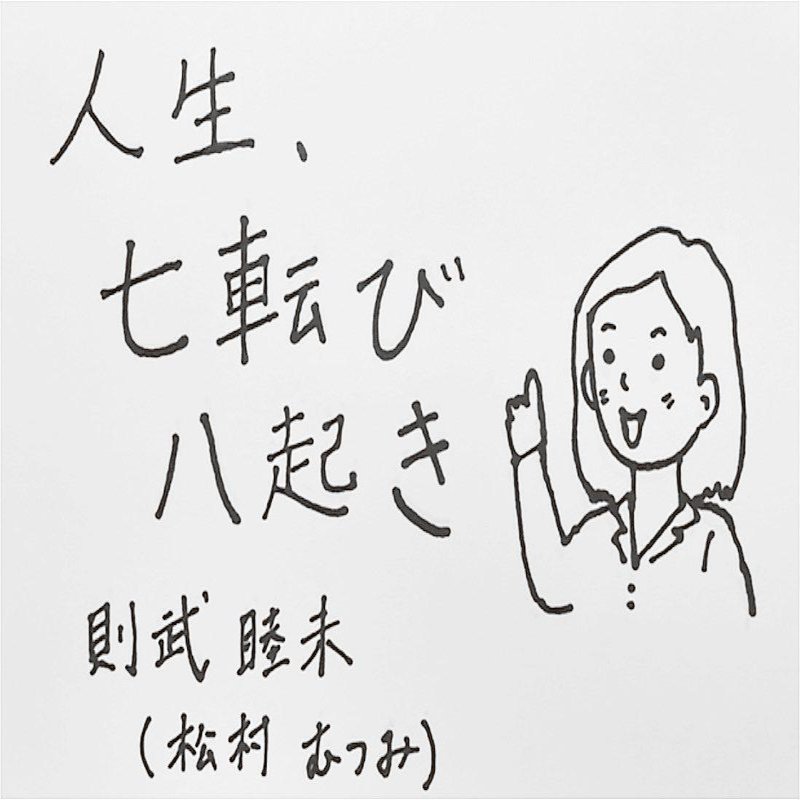 人生、
七転び
八起き
則武 睦未
(松村 むつみ)